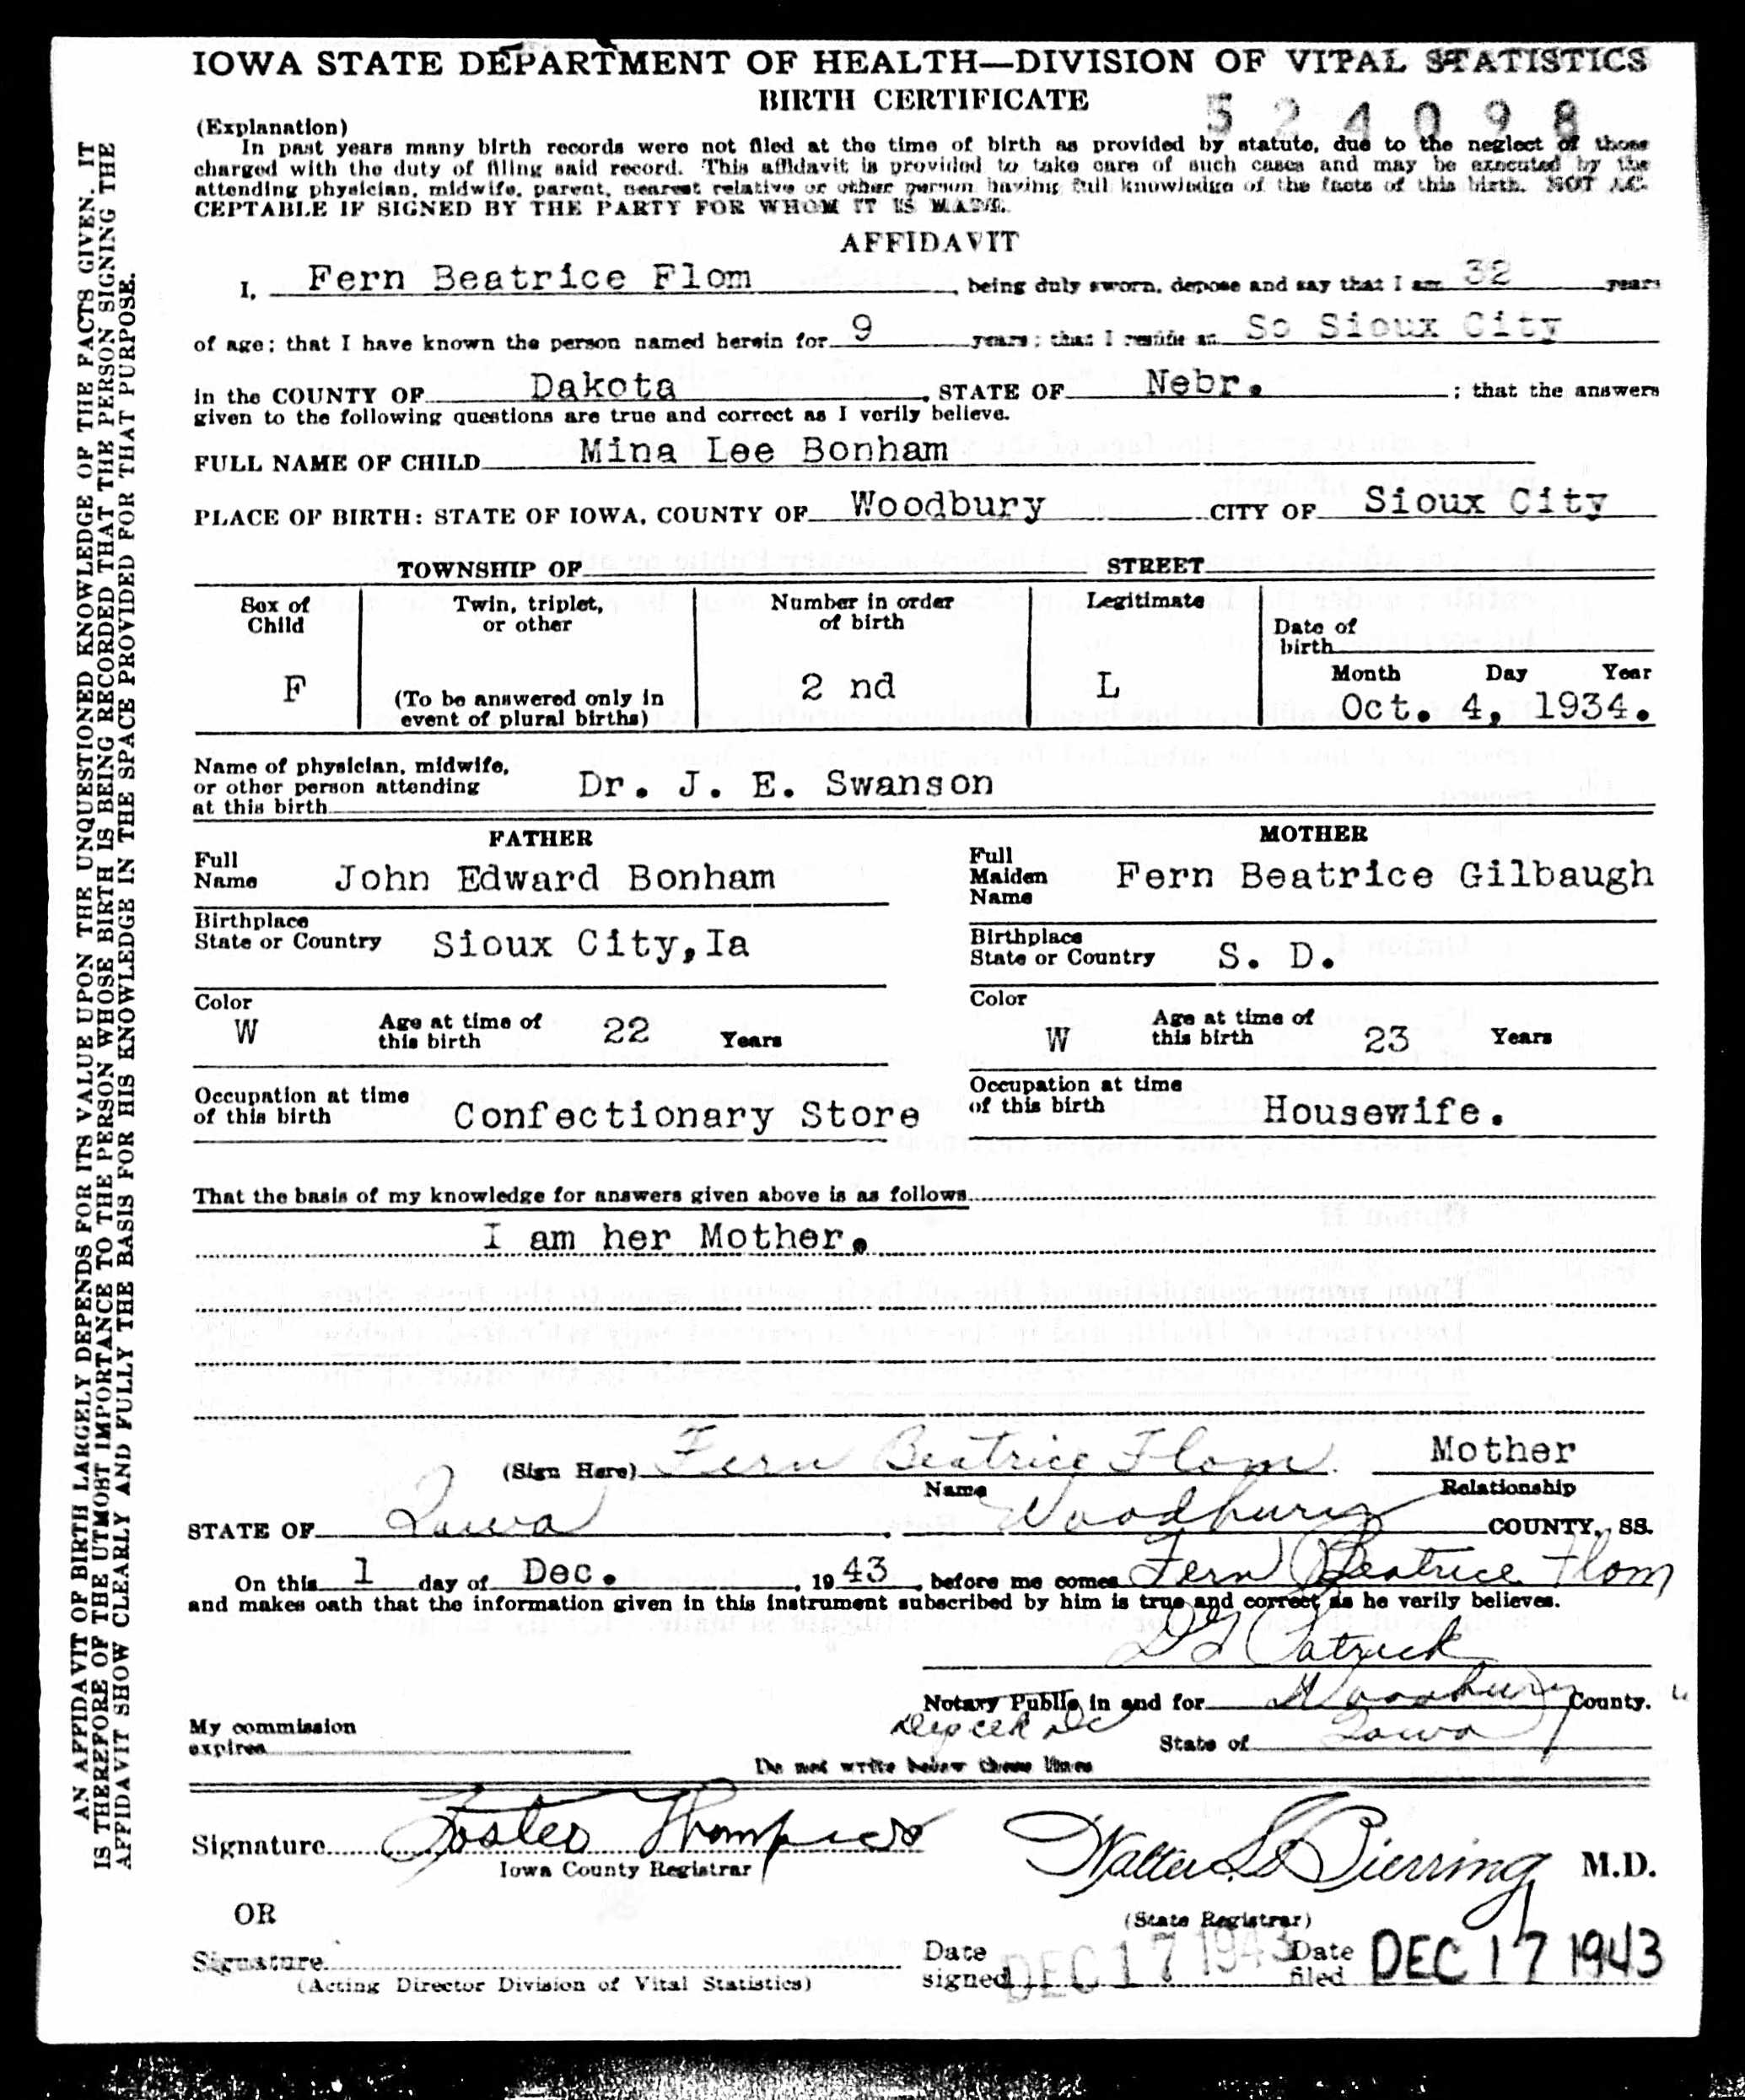 IOWA STATE DEPARTMENT OF HEALTH—DIVISION OF VITAL STATISTICS
BIRTH CERTIFICATE
524098
(Explanation)
In past years many birth records were not filed at the time of birth as provided by statute, due to the neglect of those
charged with the duty of filing said record. This affidavit is provided to take care of such cases and may be executed by the
attending physician, midwife, parent, nearest relative or other person having full knowledge of the facts of this birth. NOT AC-
CEPTABLE IF SIGNED BY THE PARTY FOR WHOM IT IS MADE.
AFFIDAVIT
I, Fern Beatrice Flom, being duly sworn, depose and say that I am 32 years
of age; that I have known the person named herein for 9 years; that I reside at So Sioux City
in the COUNTY OF Dakota, STATE OF Nebr.; that the answers
given to the following questions are true and correct as I verily believe.
FULL NAME OF CHILD Mina Lee Bonham
PLACE OF BIRTH: STATE OF IOWA, COUNTY OF Woodbury CITY OF Sioux City
TOWNSHIP OF STREET
Sex of Child F
Twin, triplet, or other (To be answered only in event of plural births)
Number in order of birth 2 nd
Legitimate L
Date of birth Month Day Year Oct. 4, 1934.
Name of physician, midwife, or other person attending at this birth Dr. J. E. Swanson
FATHER
Full Name John Edward Bonham
Birthplace State or Country Sioux City,Ia
Color W Age at time of this birth 22 Years
Occupation at time of this birth Confectionary Store
MOTHER
Full Maiden Name Fern Beatrice Gilbaugh
Birthplace State or Country S. D.
Color W Age at time of this birth 23 Years
Occupation at time of this birth Housewife.
That the basis of my knowledge for answers given above is as follows
I am her Mother.
(Sign Here) Fern Beatrice Flom Mother
Name Relationship
STATE OF Iowa, Woodbury COUNTY, SS.
On this 1 day of Dec., 1943, before me comes Fern Beatrice Flom
and makes oath that the information given in this instrument subscribed by him is true and correct as he verily believes.
Patrick
Notary Public in and for Woodbury County.
My commission expires
State of Iowa
Do not write below these lines
Signature Foster Thompson
Iowa County Registrar
Walter L. Bierring M.D.
(State Registrar)
OR
Signature
(Acting Director Division of Vital Statistics)
Date signed DEC 17 1943 Date filed DEC 17 1943
AN AFFIDAVIT OF BIRTH LARGELY DEPENDS FOR ITS VALUE UPON THE UNQUESTIONED KNOWLEDGE OF THE FACTS GIVEN. IT
IS THEREFORE OF THE UTMOST IMPORTANCE TO THE PERSON WHOSE BIRTH IS BEING RECORDED THAT THE PERSON SIGNING THE
AFFIDAVIT SHOW CLEARLY AND FULLY THE BASIS FOR HIS KNOWLEDGE IN THE SPACE PROVIDED FOR THAT PURPOSE.